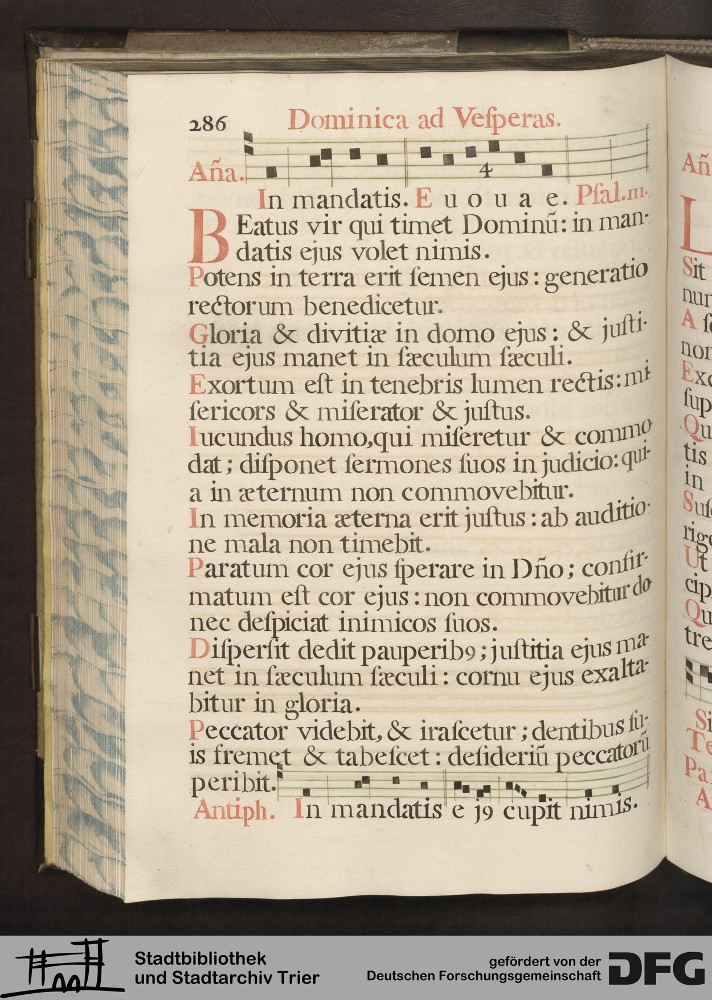 286 Dominica ad Veſperas.
4
Aña.
In mandatis. E u o u a e. Pſal.III.
BEatus vir qui timet Dominū: in man-
datis ejus volet nimis.
Potens in terra erit ſemen ejus: generatio
rectorum benedicetur.
Gloria & divitiæ in domo ejus: & juſti-
tia ejus manet in ſæculum ſæculi.
Exortum eſt in tenebris lumen rectis: mi-
ſericors & miſerator & juſtus.
Iucundus homo, qui miſeretur & commo
dat; diſponet ſermones ſuos in judicio: qui-
a in æternum non commovebitur.
In memoria æterna erit juſtus: ab auditio-
ne mala non timebit.
Paratum cor ejus ſperare in Dño; confir-
matum eſt cor ejus: non commovebitur do
nec deſpiciat inimicos ſuos.
Diſperſit dedit pauperib9; juſtitia ejus ma-
net in ſæculum ſæculi: cornu ejus exalta-
bitur in gloria.
Peccator videbit, & iraſcetur; dentibus ſu-
is fremet & tabeſcet: deſideriū peccatorū
peribit.
Antiph. In mandatis e j9 cupit nimis.
Añ
L
Sit
nur
A ſ
non
Exc
ſup
Qu
tis
in
Suſ
rige
Ut
cip
Qu
tre
Si
Te
Pa
A
Stadtbibliothek
und Stadtarchiv Trier
gefördert von der
Deutschen Forschungsgemeinschaft
DFG